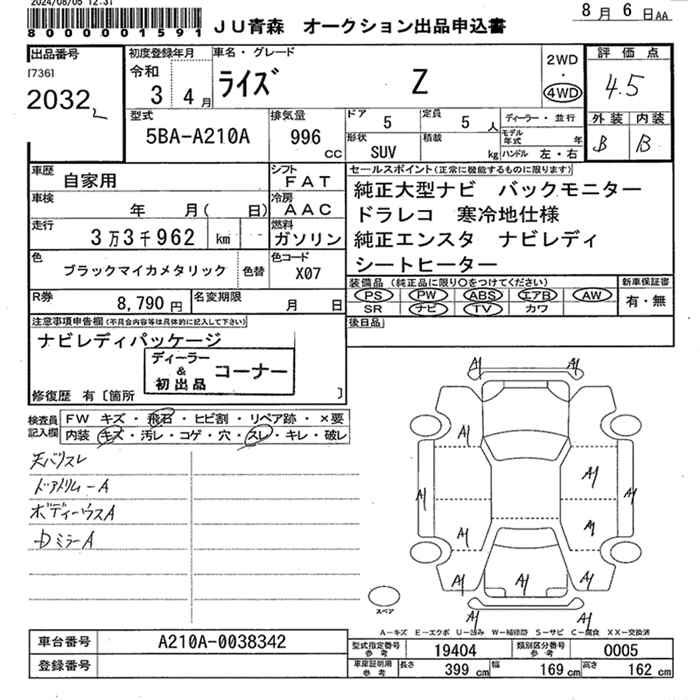 2024/08/05 12:31
80000001591
JU青森 オークション出品申込書
8月 6日AA
出品番号
[736]
2032
初度登録年月
令和
3 4月
車名・グレード
ライズ Z
2WD
・
4WD
評価点
4.5
外装 内装
B B
型式
5BA-A210A
排気量
996
cc
ドア
5
定員
5人
形状
SUV
積載
kg
ディーラー・並行
モデル年式 年
ハンドル 左・右
車歴
自家用
シフト
FAT
車検
年 月( 日)
冷房
AAC
走行
3万3千962 km
燃料
ガソリン
色
ブラックマイカメタリック
色替
色コード
X07
R券
8,790円
名変期限
月 日
セールスポイント(正常に機能するものに限ります)
純正大型ナビ バックモニター
ドラレコ 寒冷地仕様
純正エンスタ ナビレディ
シートヒーター
装備品(純正品に限り○をつけてください)
PS PW ABS エアB AW
SR ナビ TV カワ
新車保証書
有・無
後日品
注意事項申告欄(不具合内容等は具体的に記入して下さい)
ナビレディパッケージ
ディーラー
&
初出品
コーナー
修復歴 有〔箇所 〕
検査員
記入欄
FW キズ・飛石・ヒビ割・リペア跡・×要
内装・キズ・汚レ・コゲ・穴・スレ・キレ・破レ
天バリスレ
ドアトリムーA
ボディーウスA
中ミラーA
A1
A1
A1
A1
A1
A1
A1
A1
A1
A1
A1
A1
A1
スペア
A-キズ E-エクボ U-凹み W-補修跡 S-サビ C-腐食 XX-交換済
車台番号
A210A-0038342
登録番号
型式指定番号
参考
19404
類別区分番号
参考
0005
車庫証明用
参考
長さ
399 cm
幅
169 cm
高さ
162 cm